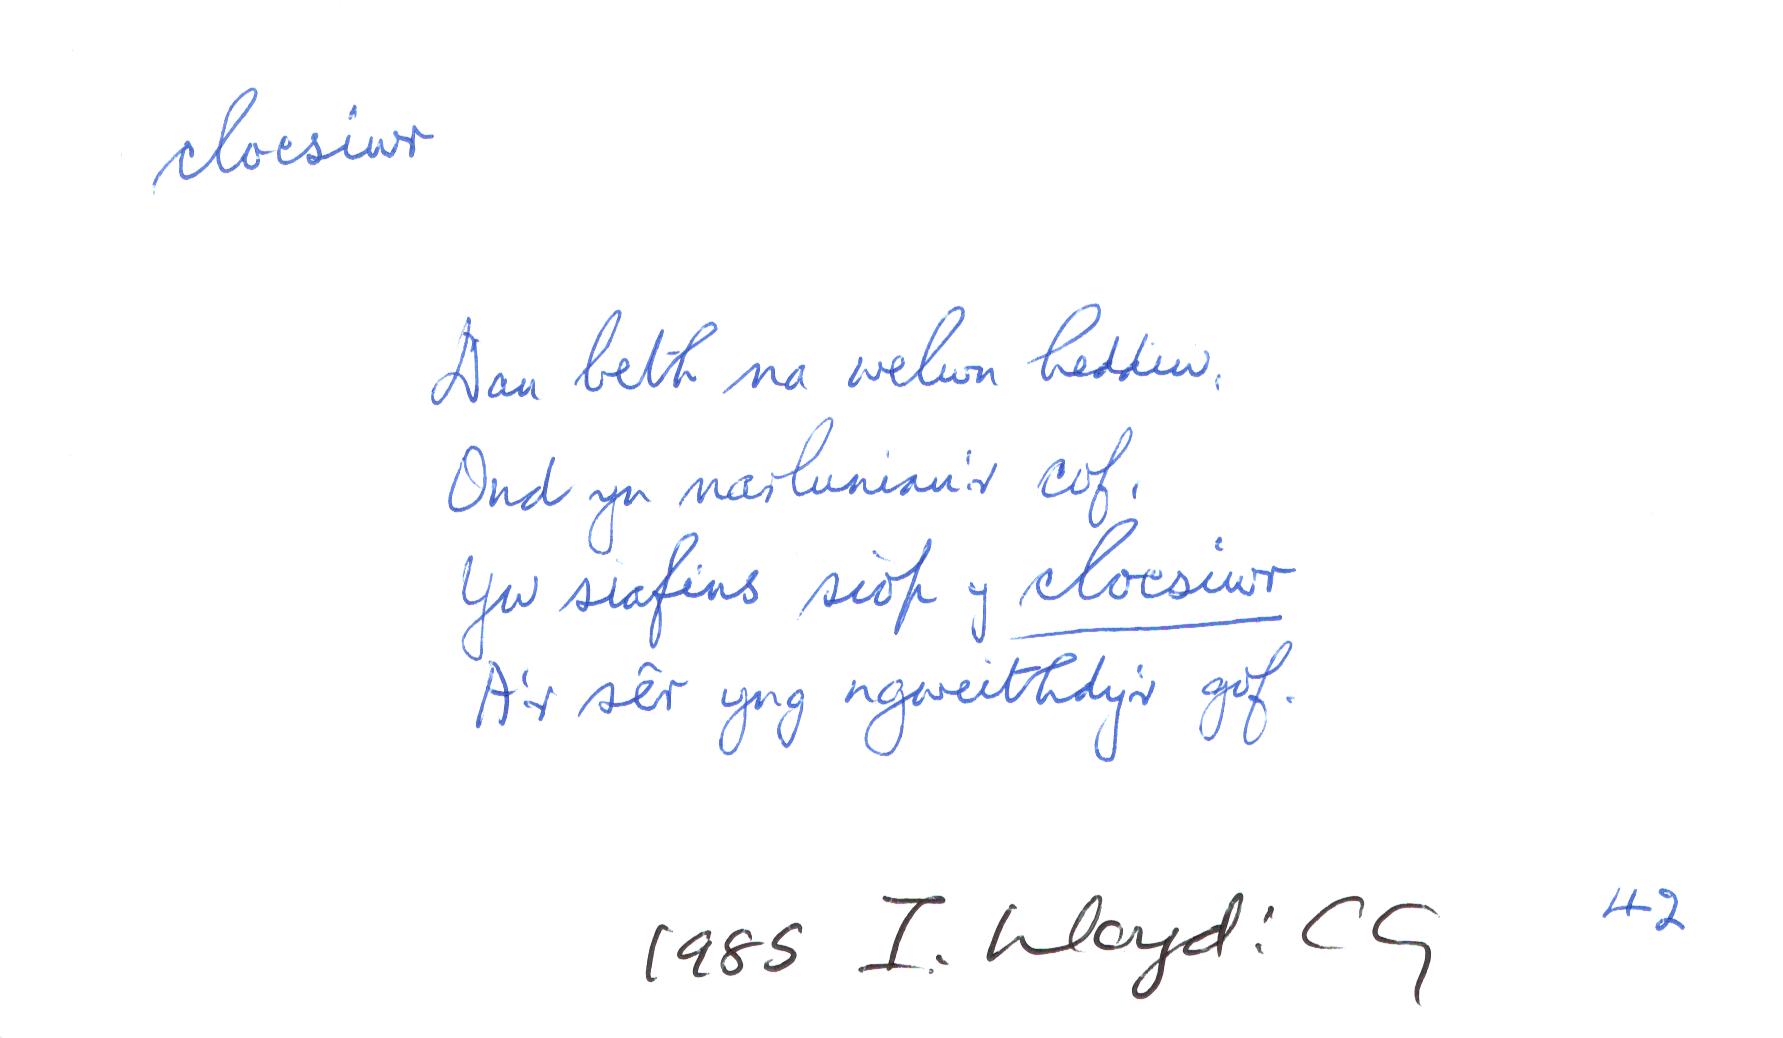 clocsiwr
Dau beth na welwn heddiw,
Ond yn narluniau'r cof,
Yw siafins siòp y clocsiwr
A'r sêr yng ngweithdy'r gof.
1985 I. Lloyd: CG 42